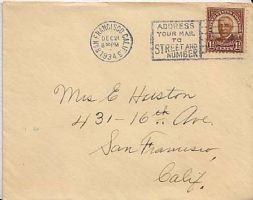 SAN FRANCISCO, CALIF.
DEC 21
1934
ADDRESS
YOUR MAIL
TO
STREET AND
NUMBER
Mrs E Huston
431-16th Ave.
San Francisco
Calif.